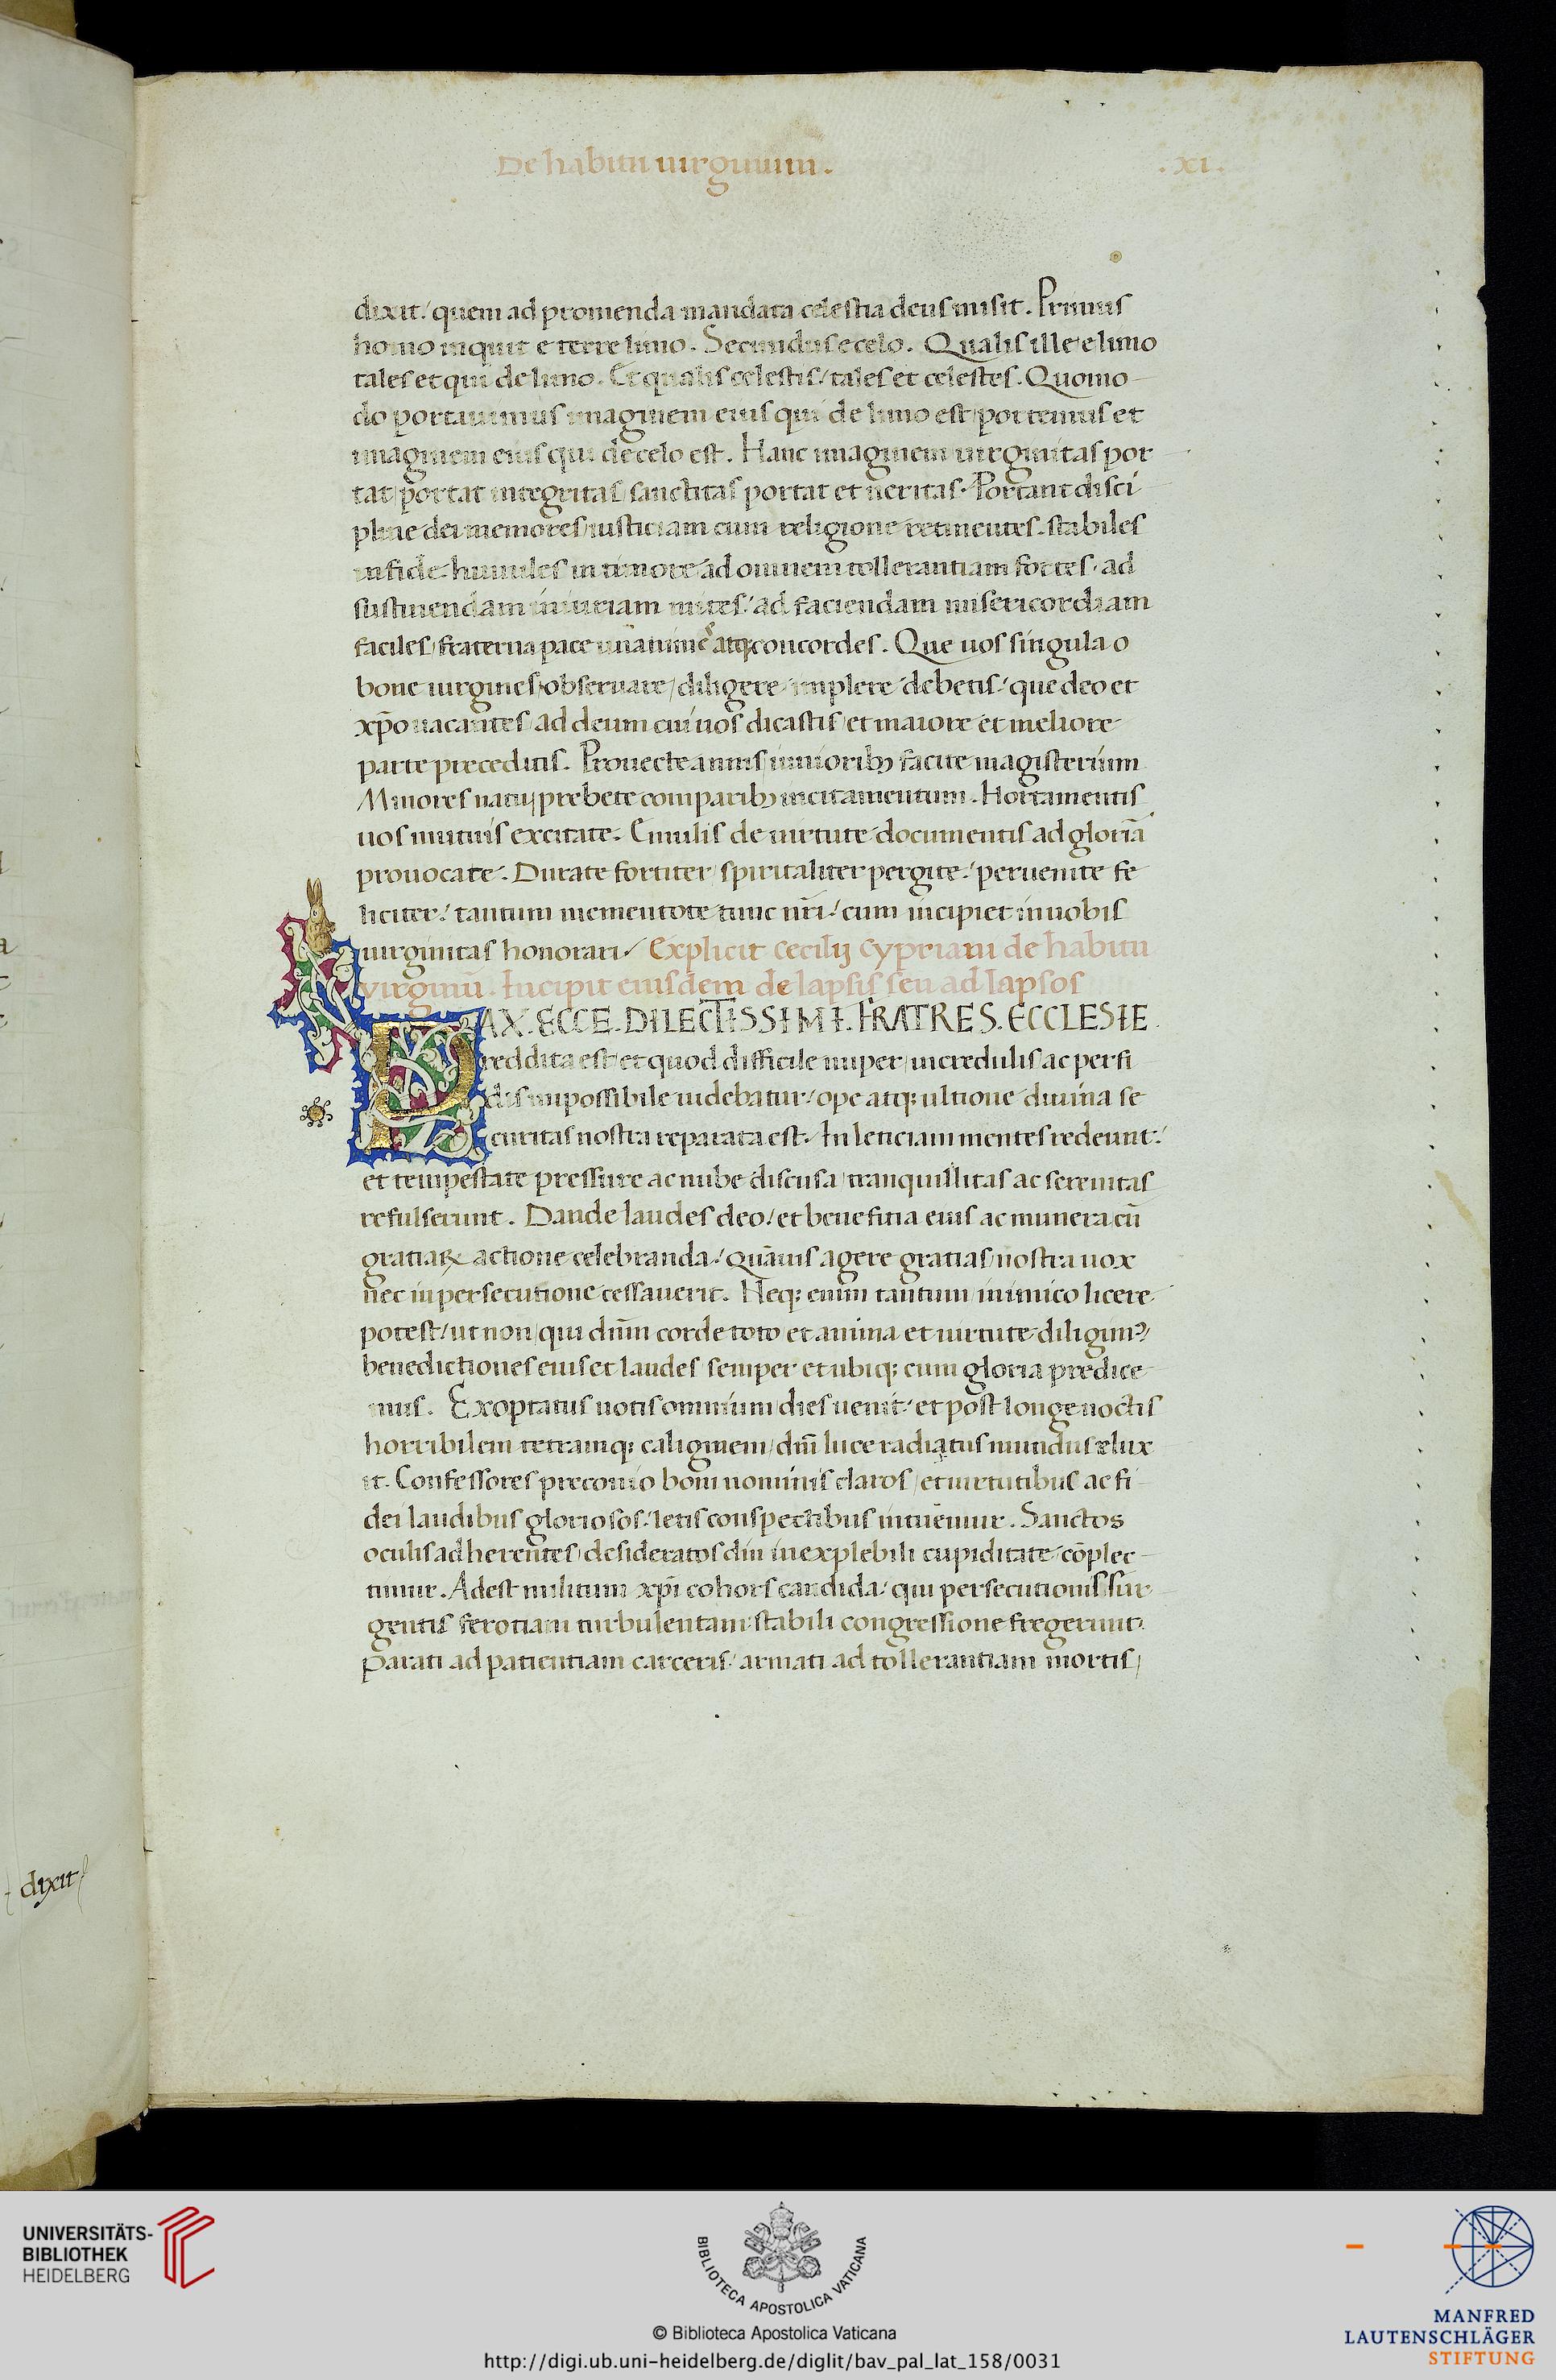 De habitu uirginum.
.XI.
dixit / quem ad promenda mandata celestia deus misit. Primus
homo inquit e terre limo. Secundus e celo. Qualis ille e limo
tales et qui de limo. Et qualis celestis / tales et celestes. Quomo
do portauimus imaginem eius qui de limo est / portemus et
imaginem eius qui de celo est. Hanc imaginem uirginitas por
tat / portat integritas / sanctitas portat et ueritas. Portant disci
pline dei memores / iusticiam cum religione retinentes. stabiles
in fide. humiles in timore. ad omnem tollerantiam fortes. ad
sustinendam iniuriam mites / ad faciendam misericordiam
faciles / fraterna pace unanimes atq; concordes. Que uos singula o
bone uirgines / obseruare / diligere / implere debetis / que deo et
xp̄o uacantes / ad deum cui uos dicastis / et maiore et meliore
parte preceditis. Prouecte annis / iunioribꝫ facite magisterium
Minores natu / prebete comparibꝫ incitamentum. Hortamentis
uos mutuis excitate. Emulis de uirtute documentis ad gloriā
prouocate. Durate fortiter / spiritaliter pergite / peruenite fe
liciter / tantum mementote tunc nr̄i / cum incipiet in uobis
uirginitas honorari / Explicit Cecilij Cypriani de habitu
virginū. Incipit eiusdem de lapsis seu ad lapsos
PAX. ECCE. DILECTISSIMI. FRATRES. ECCLESIE.
reddita est / et quod difficile nuper / incredulis ac perfi
dis impossibile uidebatur / ope atq; ultione diuina se
curitas nostra reparata est. In leticiam mentes redeunt /
et tempestate pressure ac nube discusa / tranquillitas ac serenitas
refulserunt. Dande laudes deo / et benefitia eius ac munera cū
gratiaꝝ actione celebranda / quāuis agere gratias / nostra uox
nec in persecutione cessauerit. Neq; enim tantum / inimico licere
potest / ut non / qui dn̄m corde toto / et anima et uirtute diligimꝰ /
benedictiones eius et laudes semper et ubiq; cum gloria predice
mus. Exoptatus uotis omnium dies uenit / et post longe noctis
horribilem tetramq; caliginem / dn̄i luce radiatus mundus elux
it. Confessores preconio boni nominis claros / et uirtutibus ac fi
dei laudibus gloriosos / letis conspectibus intuemur. Sanctos
oculis adherentes / desideratos diu inexplebili cupiditate cōplec
timur. Adest militum xp̄i cohors candida / qui persecutionis sur
gentis ferotiam turbulentam stabili congressione fregerunt.
Parati ad patientiam carceris / armati ad tollerantiam mortis /
dixit
UNIVERSITÄTS-
BIBLIOTHEK
HEIDELBERG
BIBLIOTECA APOSTOLICA VATICANA
© Biblioteca Apostolica Vaticana
http://digi.ub.uni-heidelberg.de/diglit/bav_pal_lat_158/0031
MANFRED
LAUTENSCHLÄGER
STIFTUNG